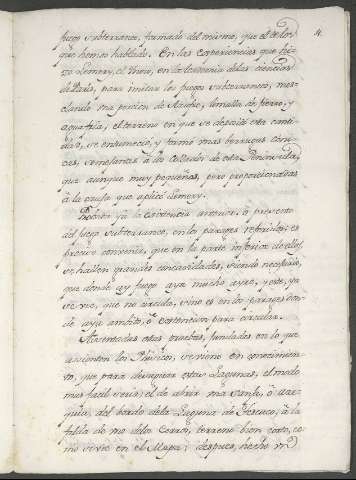 fuego subterraneo, formado del mismo, que el de los
que hemos hablado. En las experiencias que hi-
zo Lemery, el mozo, en la Academia de las ciencias
de Paris, para imitar los fuegos subterraneos, mez-
clando una porcion de Azufre, limalla de fierro, y
agua fria, el terreno en que se deposità esta canti-
dad, se entumeciò, y formò unas berrugas còni-
cas, semejantes à los collados de esta
que aunque muy pequeñas, pero proporcionadas
à la causa que aplicò Lemery.
ya la existencia anterior, ò presente
del fuego subterraneo, en los parages referidos; es
preciso convenir, que en la parte inferior de ellos
se hallen grandes concavidades, siendo necesario,
que donde ay fuego aya mucho ayre, y este, ya
se vee, que no circula, sino es en los parages don-
de aya ambito, ò extencion para circular.
Asentadas estas pruebas, fundadas en lo que
asientan los Phisicos, se viene en conocimien-
to, que para desaguar estas Lagunas, el modo
mas facil seria, el de abrir una zanja, ò aze-
quia, del bordo de la Laguna de Tescuco, à la
falda de uno de los Cerros, terreno bien corto, co-
mo se vee en el Mapa; despues, hecho un